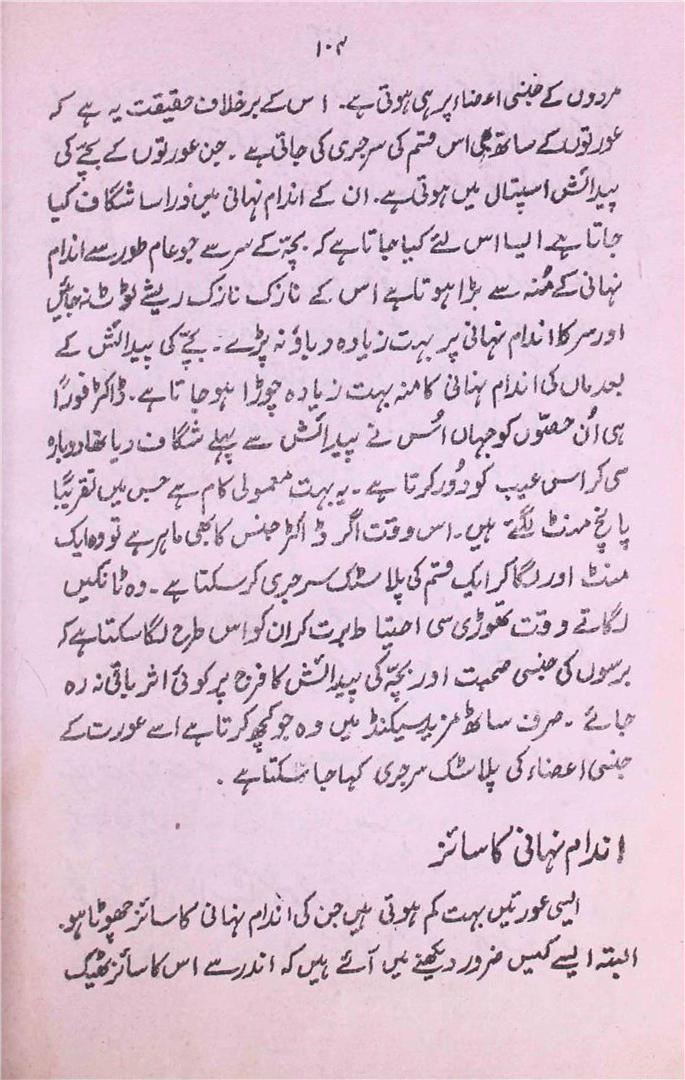 ۱۰۴
مردوں کے جنسی اعضاء پر ہی ہوتی ہے۔ اس کے برخلاف حقیقت یہ ہے کہ
عورتوں کے ساتھ بھی اس قسم کی سرجری کی جاتی ہے۔ جن عورتوں کے بچے کی
پیدائش اسپتال میں ہوتی ہے۔ ان کے اندام نہانی میں ذرا سا شگاف کیا
جاتا ہے۔ ایسا اس لئے کیا جاتا ہے کہ بچّہ کے سر سے جو عام طور سے اندام
نہانی کے مُنہ سے بڑا ہوتا ہے اس کے نازک نازک ریشے ٹوٹ نہ جائیں
اور سر کا اندام نہانی پر بہت زیادہ دباؤ نہ پڑے۔ بچّے کی پیدائش کے
بعد ماں کی اندام نہانی کا منہ بہت زیادہ چوڑا ہو جاتا ہے۔ ڈاکٹر فوراً
ہی اُن حصّوں کو جہاں اُس نے پیدائش سے پہلے شگاف دیا تھا دوبارہ
سی کر اس عیب کو دُور کرتا ہے۔ یہ بہت معمولی کام ہے جس میں تقریباً
پانچ منٹ لگتے ہیں۔ اس وقت اگر ڈاکٹر جنس کا بھی ماہر ہے تو وہ ایک
منٹ اور لگا کر ایک قسم کی پلاسٹک سرجری کر سکتا ہے۔ وہ ٹانکیں
لگاتے وقت تھوڑی سی احتیاط برت کر ان کو اس طرح لگا سکتا ہے کہ
برسوں کی جنسی صحبت اور بچّہ کی پیدائش کا فرج پر کوئی اثر باقی نہ رہ
جائے۔ صرف ساٹھ مزید سیکنڈ میں وہ جو کچھ کرتا ہے اسے عورت کے
جنسی اعضاء کی پلاسٹک سرجری کہا جا سکتا ہے۔
اندام نہانی کا سائز
ایسی عورتیں بہت کم ہوتی ہیں جن کی اندام نہانی کا سائز چھوٹا ہو۔
البتہ ایسے کیس ضرور دیکھنے میں آئے ہیں کہ اندر سے اس کا سائز ٹھیک